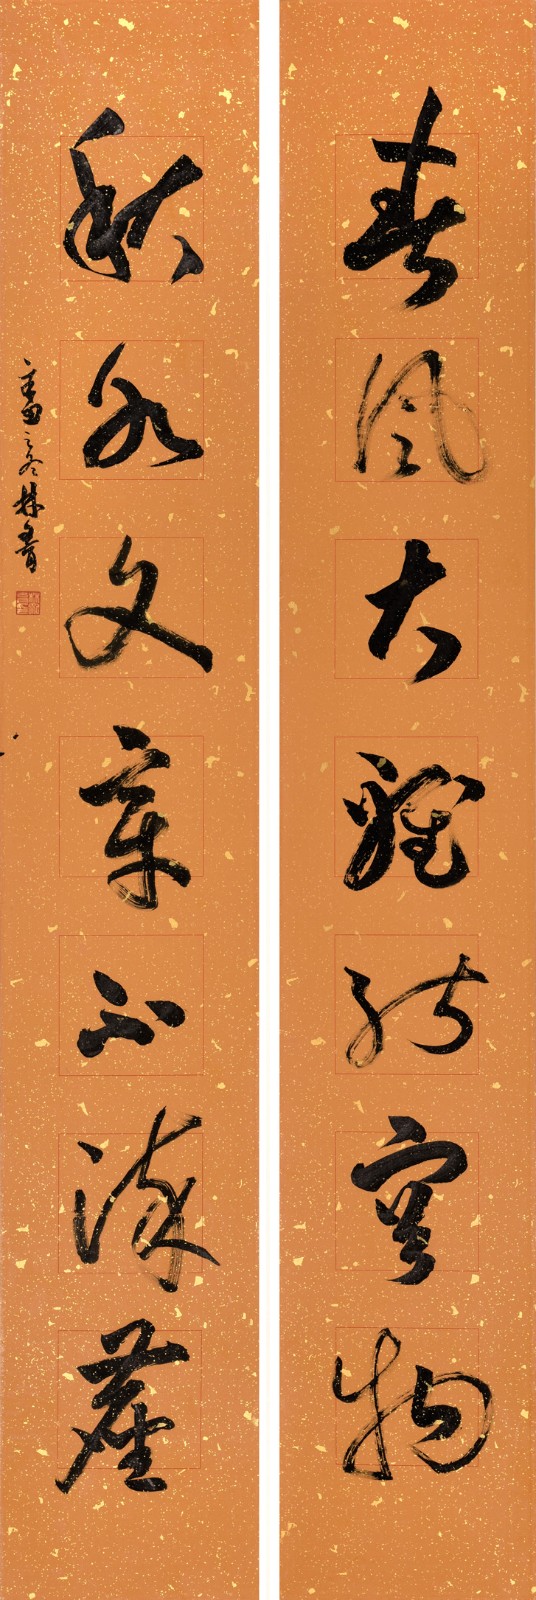 春風大雅能容物
秋水文章不染塵
辛丑之冬林青